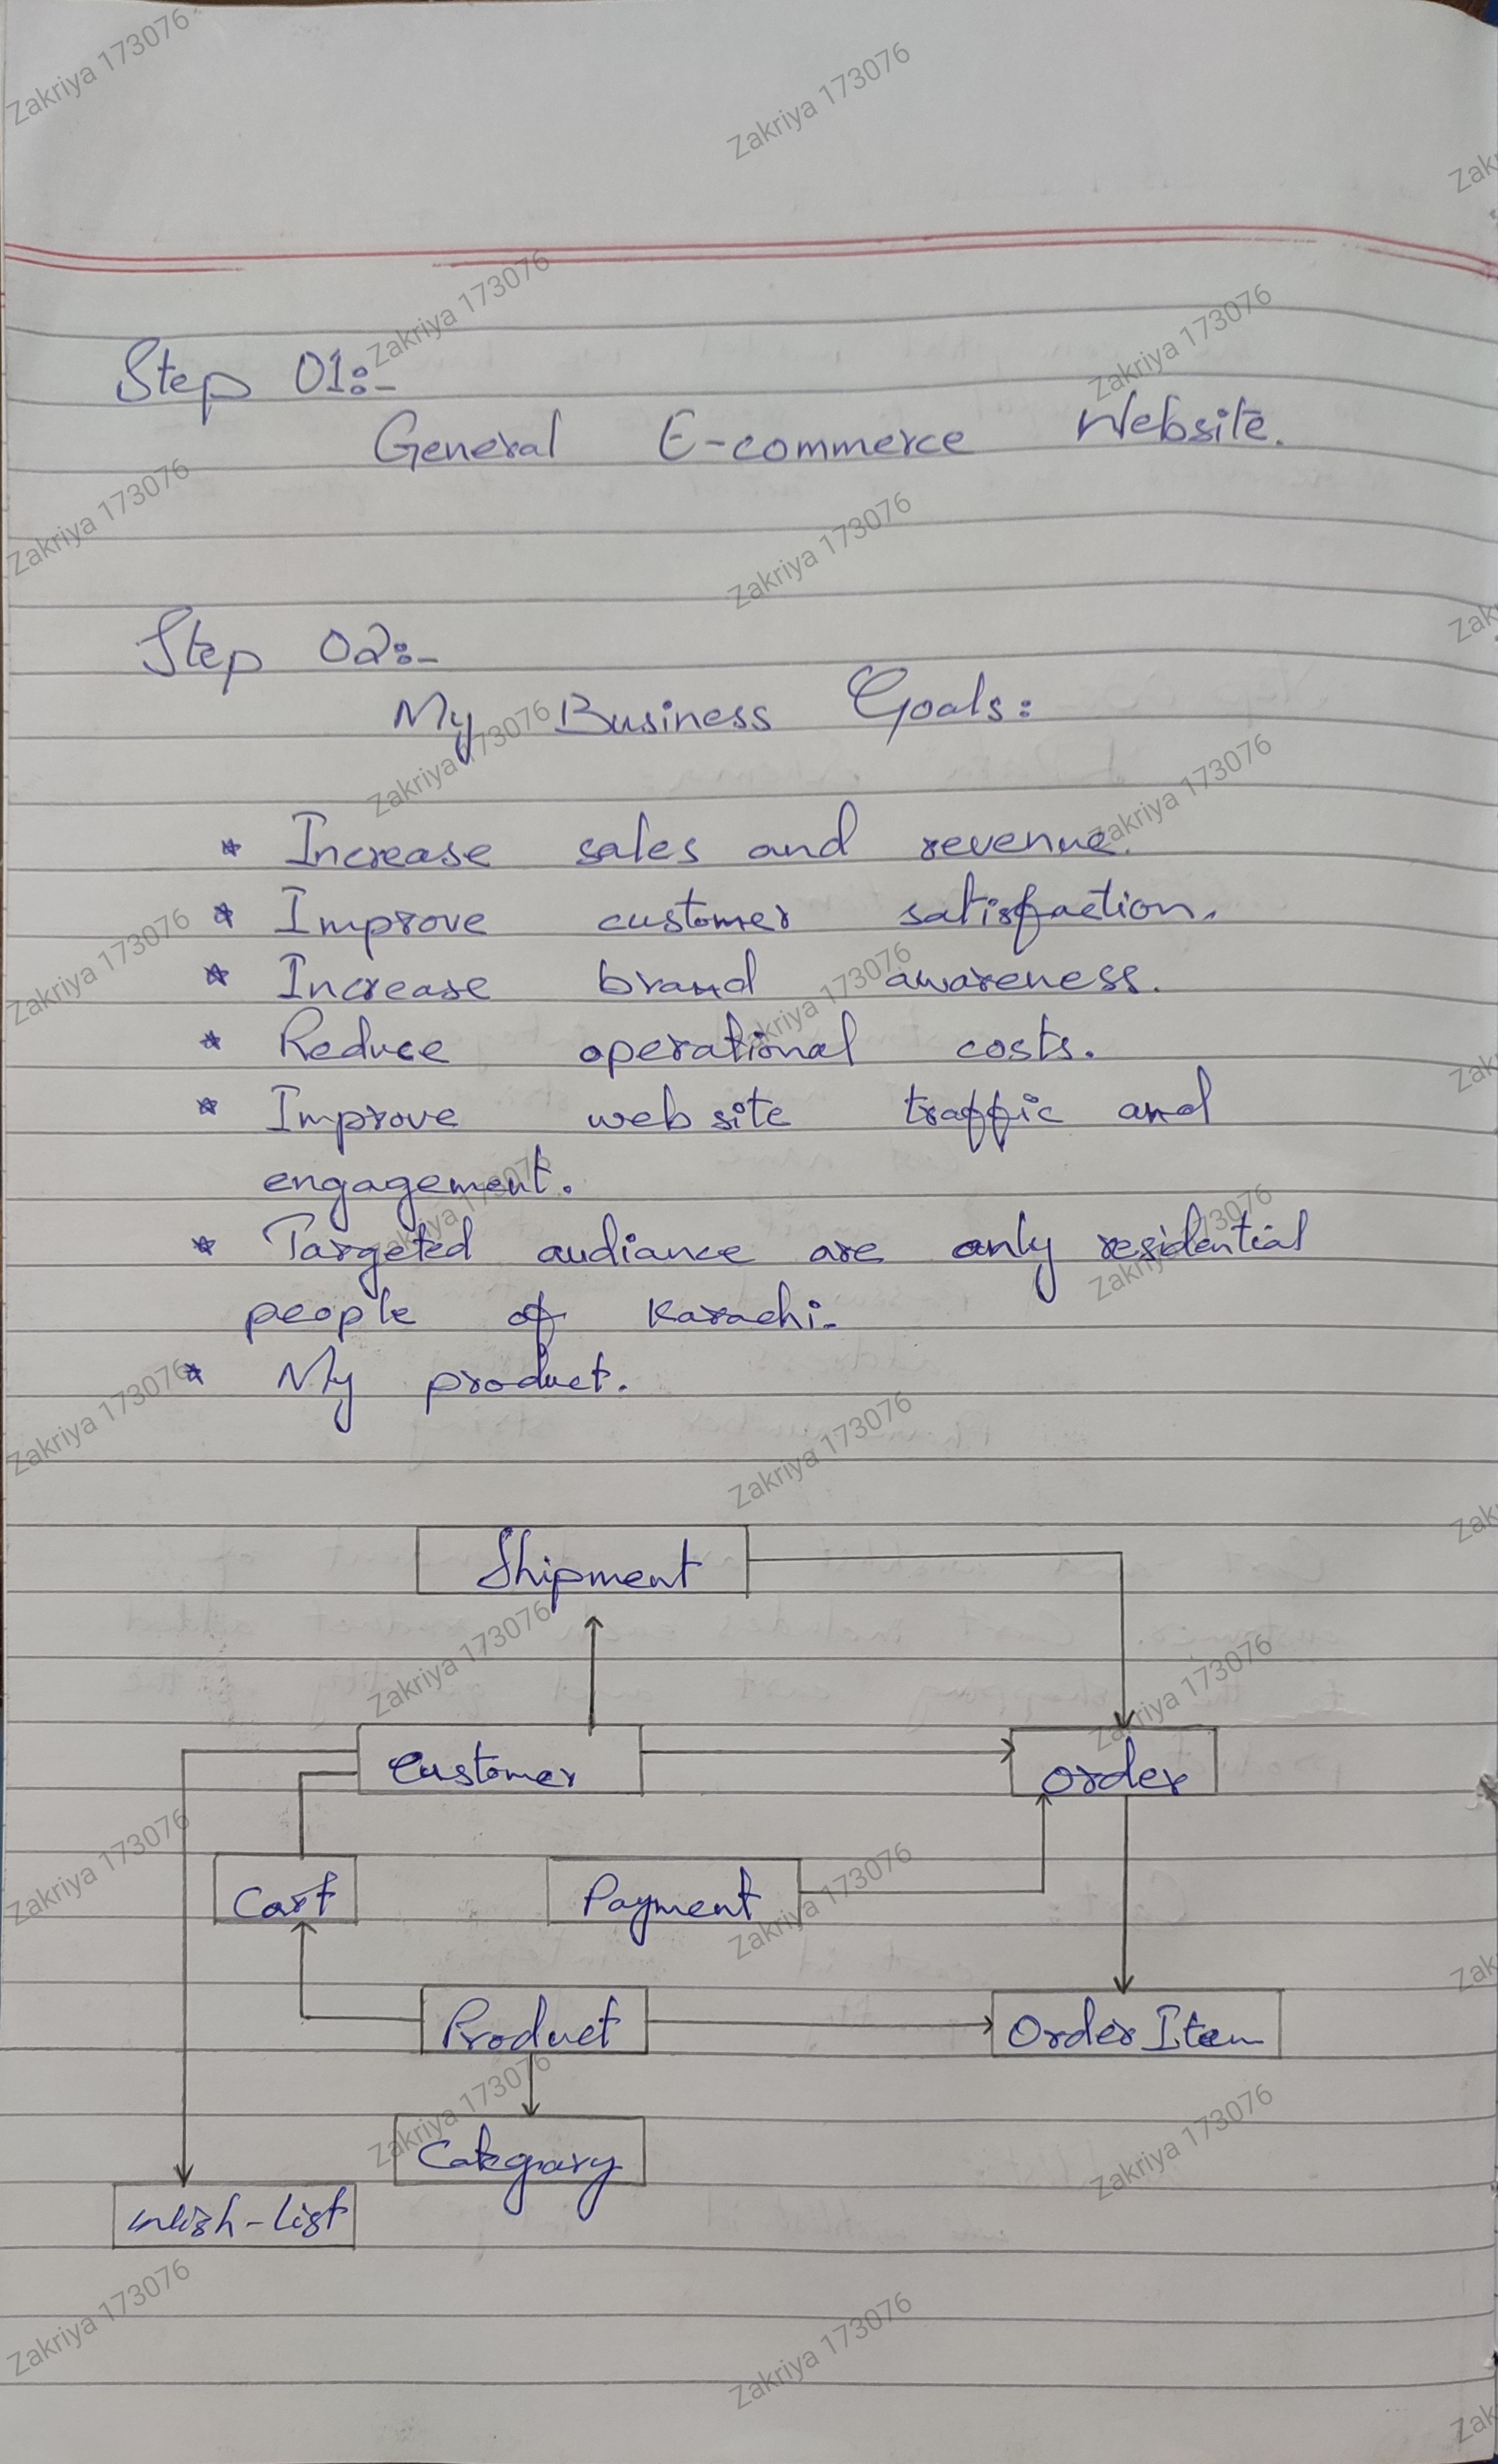 Step 01:-
General E-commerce Website.
Step 02:-
My Business Goals:
* Increase sales and revenue.
* Improve customer satisfaction.
* Increase brand awareness.
* Reduce operational costs.
* Improve website traffic and
engagement.
* Targeted audiance are only residential
people of Karachi.
* My product.
Shipment
Customer
Order
Cart
Payment
Product
Order Item
Category
Wish-List
Zakriya 173076